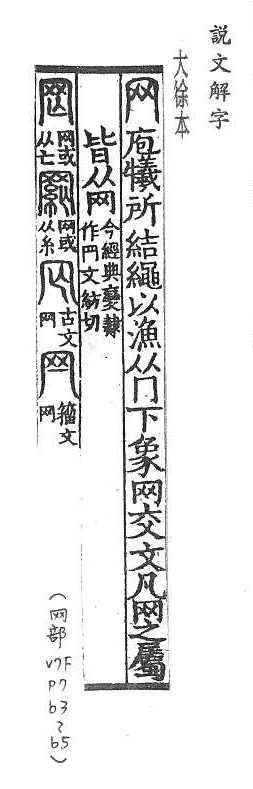 説文解字
大徐本
网庖犧所結繩以漁从冂下象网交文凡网之屬
皆从网今經典變隸作罓文紡切
罔网或从亡 䋄网或从糸 𦉸古文网 𦉫籀文网
(网部 V7F P7 b3~b5)